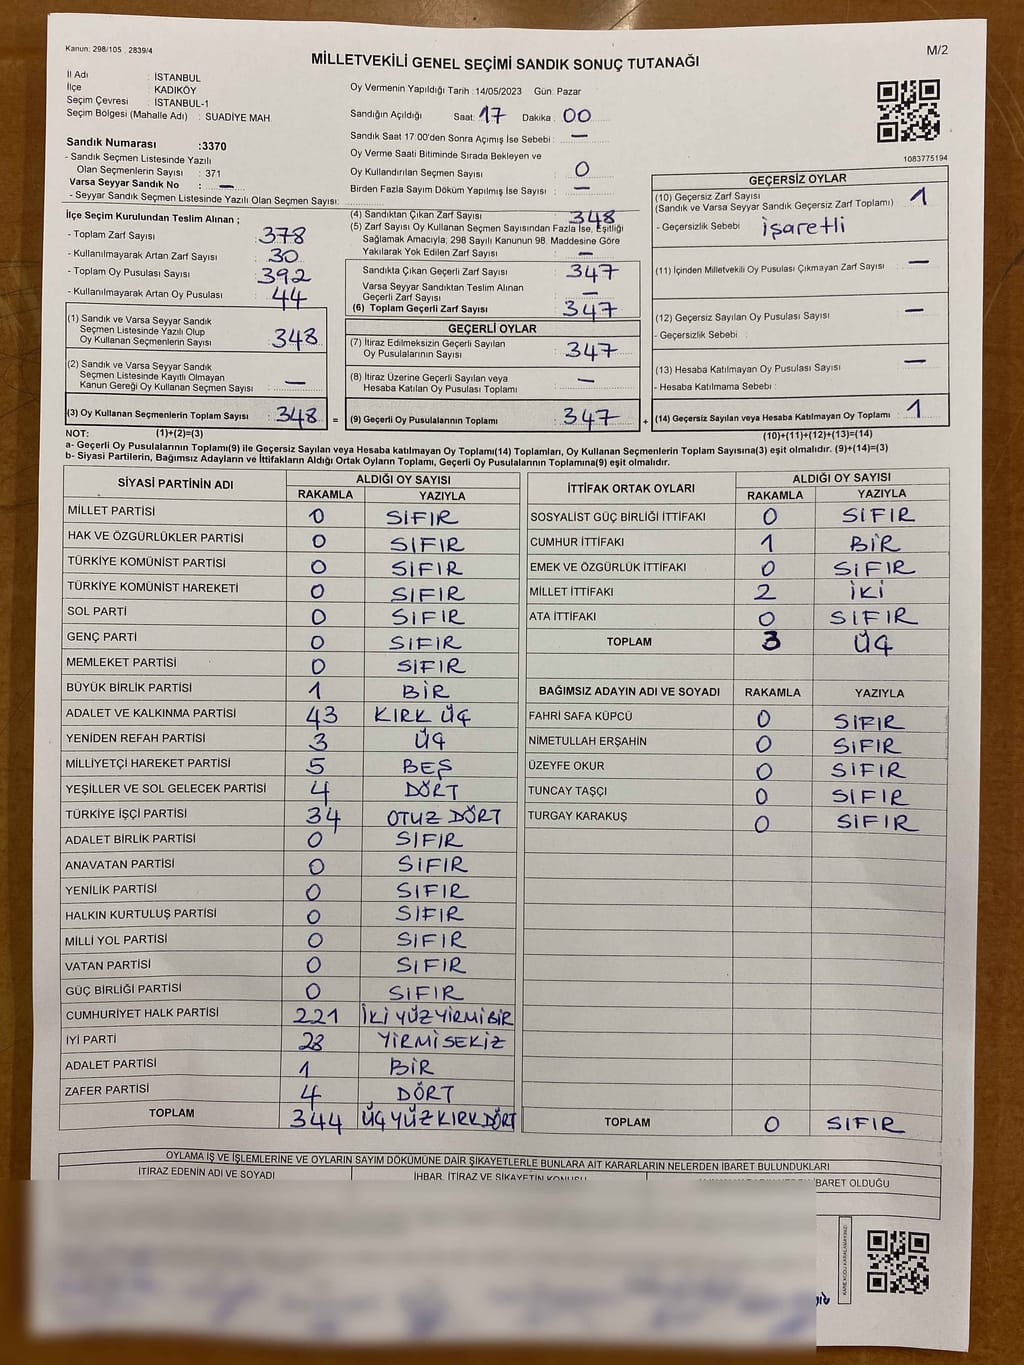 Kanun: 298/105 2839/4
M/2
MİLLETVEKİLİ GENEL SEÇİMİ SANDIK SONUÇ TUTANAĞI
İl Adı : İSTANBUL
İlçe : KADIKÖY
Seçim Çevresi : İSTANBUL-1
Seçim Bölgesi (Mahalle Adı) : SUADİYE MAH.
Sandık Numarası :3370
- Sandık Seçmen Listesinde Yazılı
Olan Seçmenlerin Sayısı : 371
Varsa Seyyar Sandık No : —
- Seyyar Sandık Seçmen Listesinde Yazılı Olan Seçmen Sayısı:
Oy Vermenin Yapıldığı Tarih : 14/05/2023 Gün: Pazar
Sandığın Açıldığı Saat: 17 Dakika: 00
Sandık Saat 17:00'den Sonra Açımış İse Sebebi : —
Oy Verme Saati Bitiminde Sırada Bekleyen ve
Oy Kullandırılan Seçmen Sayısı : 0
Birden Fazla Sayım Döküm Yapılmış İse Sayısı : —
1083775194
İlçe Seçim Kurulundan Teslim Alınan ;
- Toplam Zarf Sayısı : 378
- Kullanılmayarak Artan Zarf Sayısı : 30
- Toplam Oy Pusulası Sayısı : 392
- Kullanılmayarak Artan Oy Pusulası : 44
(1) Sandık ve Varsa Seyyar Sandık
Seçmen Listesinde Yazılı Olup
Oy Kullanan Seçmenlerin Sayısı : 348
(2) Sandık ve Varsa Seyyar Sandık
Seçmen Listesinde Kayıtlı Olmayan
Kanun Gereği Oy Kullanan Seçmen Sayısı : —
(3) Oy Kullanan Seçmenlerin Toplam Sayısı : 348 =
(4) Sandıktan Çıkan Zarf Sayısı : 348
(5) Zarf Sayısı Oy Kullanan Seçmen Sayısından Fazla İse, Eşitliği
Sağlamak Amacıyla, 298 Sayılı Kanunun 98. Maddesine Göre
Yakılarak Yok Edilen Zarf Sayısı : —
Sandıkta Çıkan Geçerli Zarf Sayısı : 347
Varsa Seyyar Sandıktan Teslim Alınan
Geçerli Zarf Sayısı : —
(6) Toplam Geçerli Zarf Sayısı : 347
GEÇERLİ OYLAR
(7) İtiraz Edilmeksizin Geçerli Sayılan
Oy Pusulalarının Sayısı : 347
(8) İtiraz Üzerine Geçerli Sayılan veya
Hesaba Katılan Oy Pusulası Toplamı : —
(9) Geçerli Oy Pusulalarının Toplamı : 347 +
GEÇERSİZ OYLAR
(10) Geçersiz Zarf Sayısı : 1
(Sandık ve Varsa Seyyar Sandık Geçersiz Zarf Toplamı)
- Geçersizlik Sebebi : işaretli
(11) İçinden Milletvekili Oy Pusulası Çıkmayan Zarf Sayısı : —
(12) Geçersiz Sayılan Oy Pusulası Sayısı : —
- Geçersizlik Sebebi :
(13) Hesaba Katılmayan Oy Pusulası Sayısı : —
- Hesaba Katılmama Sebebi :
(14) Geçersiz Sayılan veya Hesaba Katılmayan Oy Toplamı : 1
NOT: (1)+(2)=(3)
(10)+(11)+(12)+(13)=(14)
a- Geçerli Oy Pusulalarının Toplamı(9) ile Geçersiz Sayılan veya Hesaba katılmayan Oy Toplamı(14) Toplamları, Oy Kullanan Seçmenlerin Toplam Sayısına(3) eşit olmalıdır. (9)+(14)=(3)
b- Siyasi Partilerin, Bağımsız Adayların ve İttifakların Aldığı Ortak Oyların Toplamı, Geçerli Oy Pusulalarının Toplamına(9) eşit olmalıdır.
SİYASİ PARTİNİN ADI ALDIĞI OY SAYISI
RAKAMLA YAZIYLA
MİLLET PARTİSİ 0 SIFIR
HAK VE ÖZGÜRLÜKLER PARTİSİ 0 SIFIR
TÜRKİYE KOMÜNİST PARTİSİ 0 SIFIR
TÜRKİYE KOMÜNİST HAREKETİ 0 SIFIR
SOL PARTİ 0 SIFIR
GENÇ PARTİ 0 SIFIR
MEMLEKET PARTİSİ 0 SIFIR
BÜYÜK BİRLİK PARTİSİ 1 BİR
ADALET VE KALKINMA PARTİSİ 43 KIRK ÜÇ
YENİDEN REFAH PARTİSİ 3 ÜÇ
MİLLİYETÇİ HAREKET PARTİSİ 5 BEŞ
YEŞİLLER VE SOL GELECEK PARTİSİ 4 DÖRT
TÜRKİYE İŞÇİ PARTİSİ 34 OTUZ DÖRT
ADALET BİRLİK PARTİSİ 0 SIFIR
ANAVATAN PARTİSİ 0 SIFIR
YENİLİK PARTİSİ 0 SIFIR
HALKIN KURTULUŞ PARTİSİ 0 SIFIR
MİLLİ YOL PARTİSİ 0 SIFIR
VATAN PARTİSİ 0 SIFIR
GÜÇ BİRLİĞİ PARTİSİ 0 SIFIR
CUMHURİYET HALK PARTİSİ 221 İKİ YÜZ YİRMİ BİR
İYİ PARTİ 28 YİRMİ SEKİZ
ADALET PARTİSİ 1 BİR
ZAFER PARTİSİ 4 DÖRT
TOPLAM 344 ÜÇ YÜZ KIRK DÖRT
İTTİFAK ORTAK OYLARI ALDIĞI OY SAYISI
RAKAMLA YAZIYLA
SOSYALİST GÜÇ BİRLİĞİ İTTİFAKI 0 SIFIR
CUMHUR İTTİFAKI 1 BİR
EMEK VE ÖZGÜRLÜK İTTİFAKI 0 SIFIR
MİLLET İTTİFAKI 2 İKİ
ATA İTTİFAKI 0 SIFIR
TOPLAM 3 ÜÇ
BAĞIMSIZ ADAYIN ADI VE SOYADI RAKAMLA YAZIYLA
FAHRİ SAFA KÜPCÜ 0 SIFIR
NİMETULLAH ERŞAHİN 0 SIFIR
ÜZEYFE OKUR 0 SIFIR
TUNCAY TAŞÇI 0 SIFIR
TURGAY KARAKUŞ 0 SIFIR
TOPLAM 0 SIFIR
OYLAMA İŞ VE İŞLEMLERİNE VE OYLARIN SAYIM DÖKÜMÜNE DAİR ŞİKAYETLERLE BUNLARA AİT KARARLARIN NELERDEN İBARET BULUNDUKLARI
İTİRAZ EDENİN ADI VE SOYADI
İHBAR, İTİRAZ VE ŞİKAYETİN KONUSU
İBARET OLDUĞU